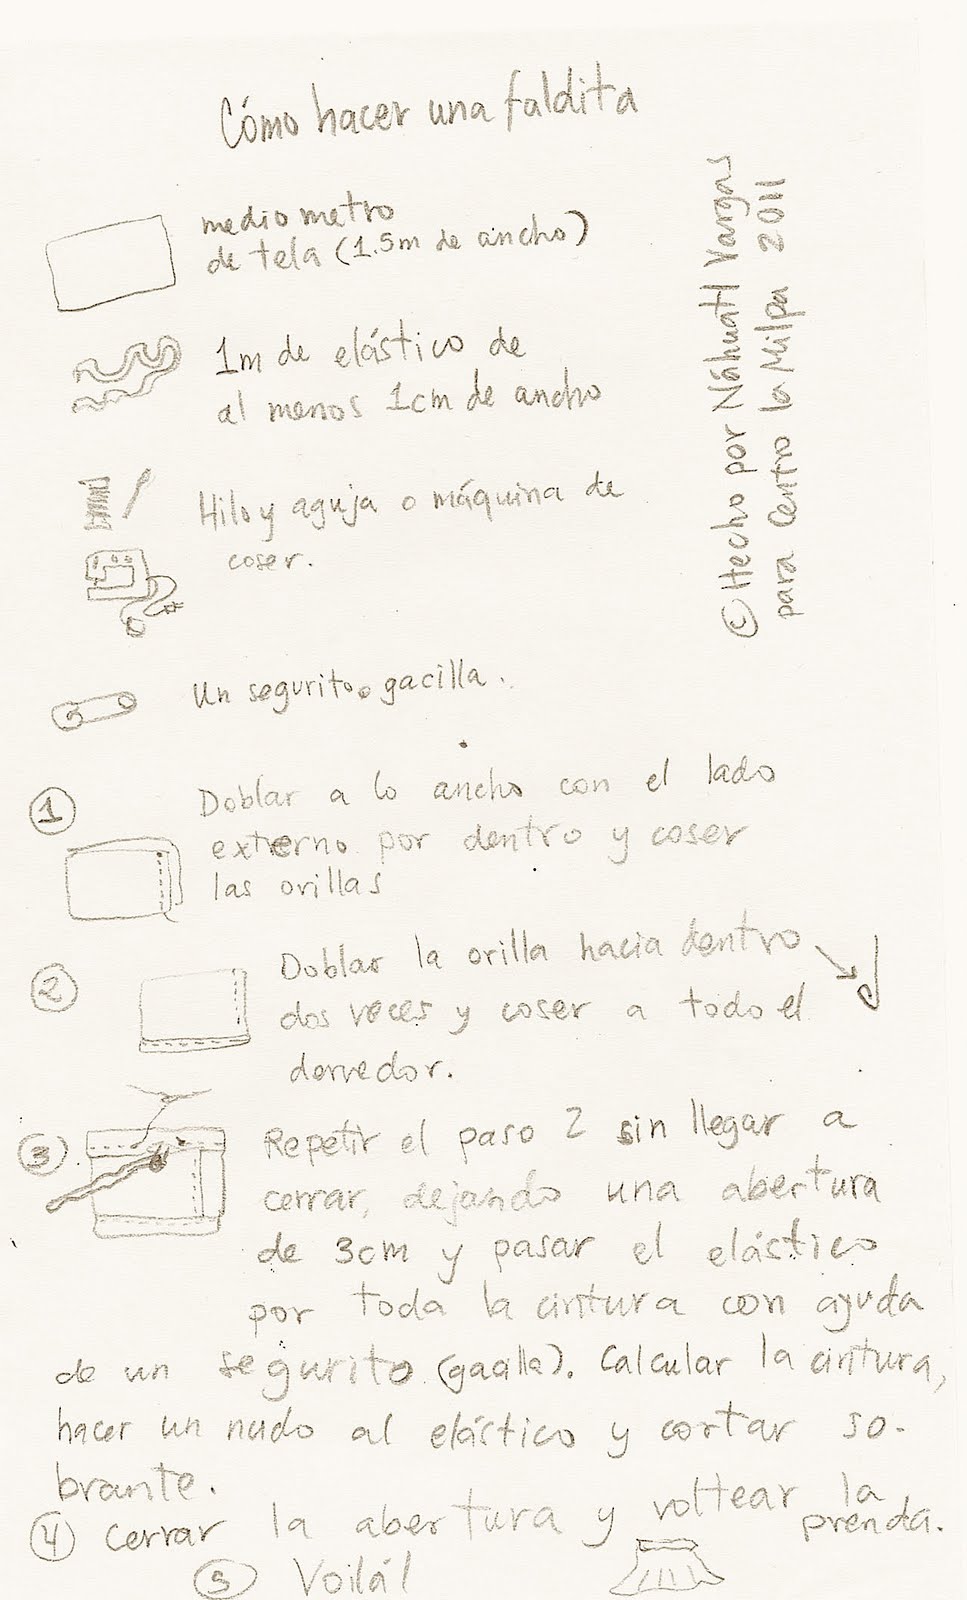 Cómo hacer una faldita
medio metro
de tela (1.5m de ancho)
1m de elástico de
al menos 1cm de ancho
Hilo y aguja o máquina de
coser.
Un segurito o gacilla.
© Hecho por Náhuatl Vargas
para Centro la Milpa 2011
1 Doblar a lo ancho con el lado
externo por dentro y coser
las orillas
2 Doblar la orilla hacia dentro
dos veces y coser a todo el
derredor.
3 Repetir el paso 2 sin llegar a
cerrar, dejando una abertura
de 3cm y pasar el elástico
por toda la cintura con ayuda
de un segurito (gacilla). Calcular la cintura,
hacer un nudo al elástico y cortar so-
brante.
4 Cerrar la abertura y voltear la
prenda.
5 Voilá!